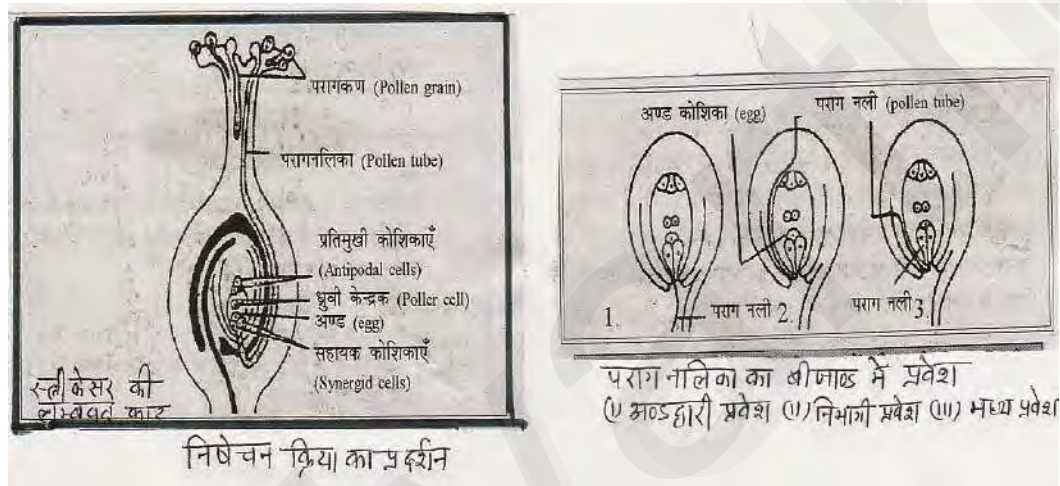 परागकण (Pollen grain)
परागनलिका (Pollen tube)
प्रतिमुखी कोशिकाएँ
(Antipodal cells)
ध्रुवी केन्द्रक (Poller cell)
अण्ड (egg)
सहायक कोशिकाएँ
(Synergid cells)
स्त्रीकेसर की
लम्बवत काट
निषेचन क्रिया का प्रदर्शन
अण्ड कोशिका (egg) पराग नली (pollen tube)
1. पराग नली 2. पराग नली 3.
पराग नलिका का बीजाण्ड में प्रवेश
(i) अण्डद्वारी प्रवेश (ii) निभागी प्रवेश (iii) मध्य प्रवेश